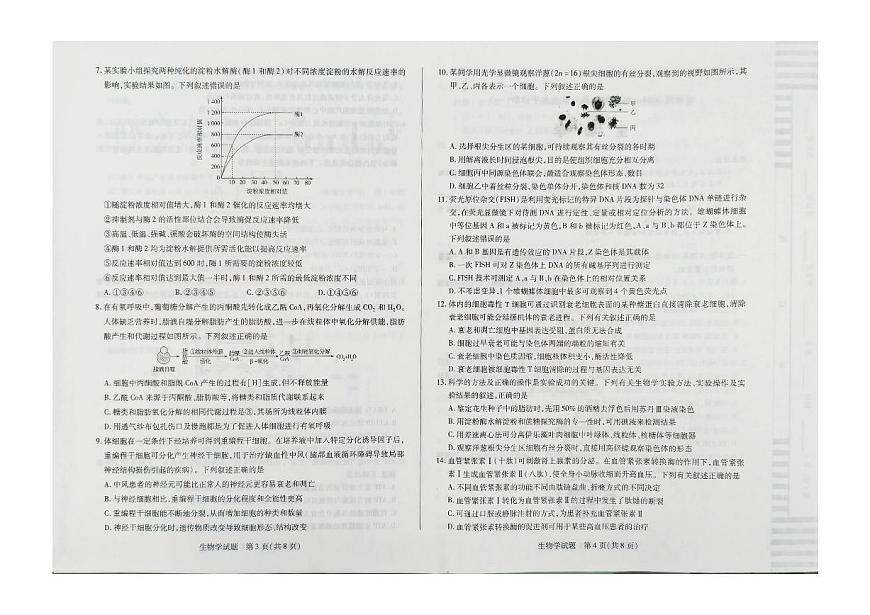 7. 某实验小组探究两种纯化的淀粉水解酶(酶1和酶2)对不同浓度淀粉的水解反应速率的
影响,实验结果如图。下列叙述错误的是
1 400
1 200
1 000
800
600
400
200
0
反应速率相对值
酶1
酶2
10 20 30 40 50 60 70 80
淀粉浓度相对值
①随淀粉浓度相对值增大,酶1和酶2催化的反应速率均增大
②抑制剂与酶2的活性部位结合会导致酶促反应速率降低
③高温、低温、强碱、强酸会破坏酶的空间结构使酶失活
④酶1和酶2均为淀粉水解提供所需活化能以提高反应速率
⑤反应速率相对值达到600时,酶1所需要的淀粉浓度较低
⑥反应速率相对值达到最大值一半时,酶1和酶2所需的最低淀粉浓度不同
A. ①③④⑥ B. ②③④⑤ C. ②③⑤⑥ D. ①④⑤⑥
8. 在有氧呼吸中,葡萄糖分解产生的丙酮酸先转化成乙酰CoA,再氧化分解生成CO₂和H₂O。
人体缺乏营养时,脂滴自噬分解脂肪产生的脂肪酸,进一步在线粒体中氧化分解供能,脂肪
酸产生和代谢过程如图所示。下列叙述正确的是
脂滴自噬
脂肪酸 ①线粒体外膜 活化 脂酰CoA ②进入线粒体 β-氧化 乙酰CoA ③彻底氧化分解 CO₂+H₂O
A. 细胞中丙酮酸和脂酰CoA产生的过程有[H]生成,但不释放能量
B. 乙酰CoA来源于丙酮酸、脂肪酸等,将糖类和脂质代谢联系起来
C. 糖类和脂肪氧化分解的相同代谢过程是③,其场所为线粒体内膜
D. 用透气纱布包扎伤口及慢跑都是为了促进人体细胞进行有氧呼吸
9. 体细胞在一定条件下经培养可得到重编程干细胞。在培养液中加入特定分化诱导因子后,
重编程干细胞可分化产生神经干细胞,用于治疗缺血性中风(脑部血液循环障碍导致局部
神经结构损伤引起的疾病)。下列叙述正确的是
A. 中风患者的神经元可能比正常人的神经元更容易衰老和凋亡
B. 与神经细胞相比,重编程干细胞的分化程度和全能性更高
C. 重编程干细胞能不断地分裂,从而增加细胞的种类和数量
D. 神经干细胞分化时,遗传物质改变导致细胞形态、结构改变
生物学试题 第3页(共8页)
10. 某同学用光学显微镜观察洋葱(2n=16)根尖细胞的有丝分裂,观察到的视野如图所示,其
甲、乙、丙各表示一个细胞。下列叙述正确的是
甲
乙
丙
A. 选择根尖分生区的某细胞,可持续观察其有丝分裂的各时期
B. 用解离液长时间浸泡根尖,目的是使组织细胞充分相互分离
C. 细胞丙中同源染色体联会,最适合观察染色体形态、数目
D. 细胞乙中着丝粒分裂,染色单体分开,染色体和核DNA数为32
11. 荧光原位杂交(FISH)是利用荧光标记的特异DNA片段为探针与染色体DNA单链进行杂
交,在荧光显微镜下对待测DNA进行定性、定量或相对定位分析的方法。雄蝴蝶体细胞
中等位基因A和a被标记为黄色,B和b被标记为红色,A、a与B、b都位于Z染色体上。
下列叙述错误的是
A. A和B基因是有遗传效应的DNA片段,Z染色体是其载体
B. 一次FISH可对Z染色体上DNA的所有碱基序列进行测定
C. FISH技术可测定A、a与B、b在染色体上的相对位置关系
D. 不考虑变异,1个雄蝴蝶体细胞中最多可观察到4个黄色荧光点
12. 体内的细胞毒性T细胞可通过识别衰老细胞表面的某种糖蛋白直接清除衰老细胞,清除
衰老细胞可能会延缓机体的衰老进程。下列有关叙述正确的是
A. 衰老和凋亡细胞中基因表达受阻,蛋白质无法合成
B. 细胞过早衰老可能与染色体两端的端粒的缩短有关
C. 衰老细胞中染色质固缩,细胞核体积变小,酶活性降低
D. 衰老细胞被细胞毒性T细胞清除的过程与基因表达无关
13. 科学的方法及正确的操作是实验成功的关键。下列有关生物学实验方法、实验操作及实
验结果的叙述,正确的是
A. 鉴定花生种子中的脂肪时,先用50%的酒精去浮色后用苏丹Ⅲ染液染色
B. 用淀粉酶水解淀粉和蔗糖探究酶的专一性时,可用碘液来检测结果
C. 用差速离心法可分离伊乐藻叶肉细胞中叶绿体、线粒体、核糖体等细胞器
D. 观察洋葱根尖分生区细胞有丝分裂时,直接用高倍镜观察染色体的形态
14. 血管紧张素Ⅰ(十肽)可刺激肾上腺素的分泌。在血管紧张素转换酶的作用下,血管紧张
素Ⅰ生成血管紧张素Ⅱ(八肽),使全身小动脉收缩而升高血压。下列有关叙述正确的是
A. 不同血管紧张素的功能不同由肽链盘曲、折叠方式的不同决定
B. 血管紧张素Ⅰ转化为血管紧张素Ⅱ的过程中发生了肽键的断裂
C. 可通过口服或静脉注射的方式,为患者补充血管紧张素Ⅱ
D. 血管紧张素转换酶的促进剂可用于某些高血压患者的治疗
生物学试题 第4页(共8页)